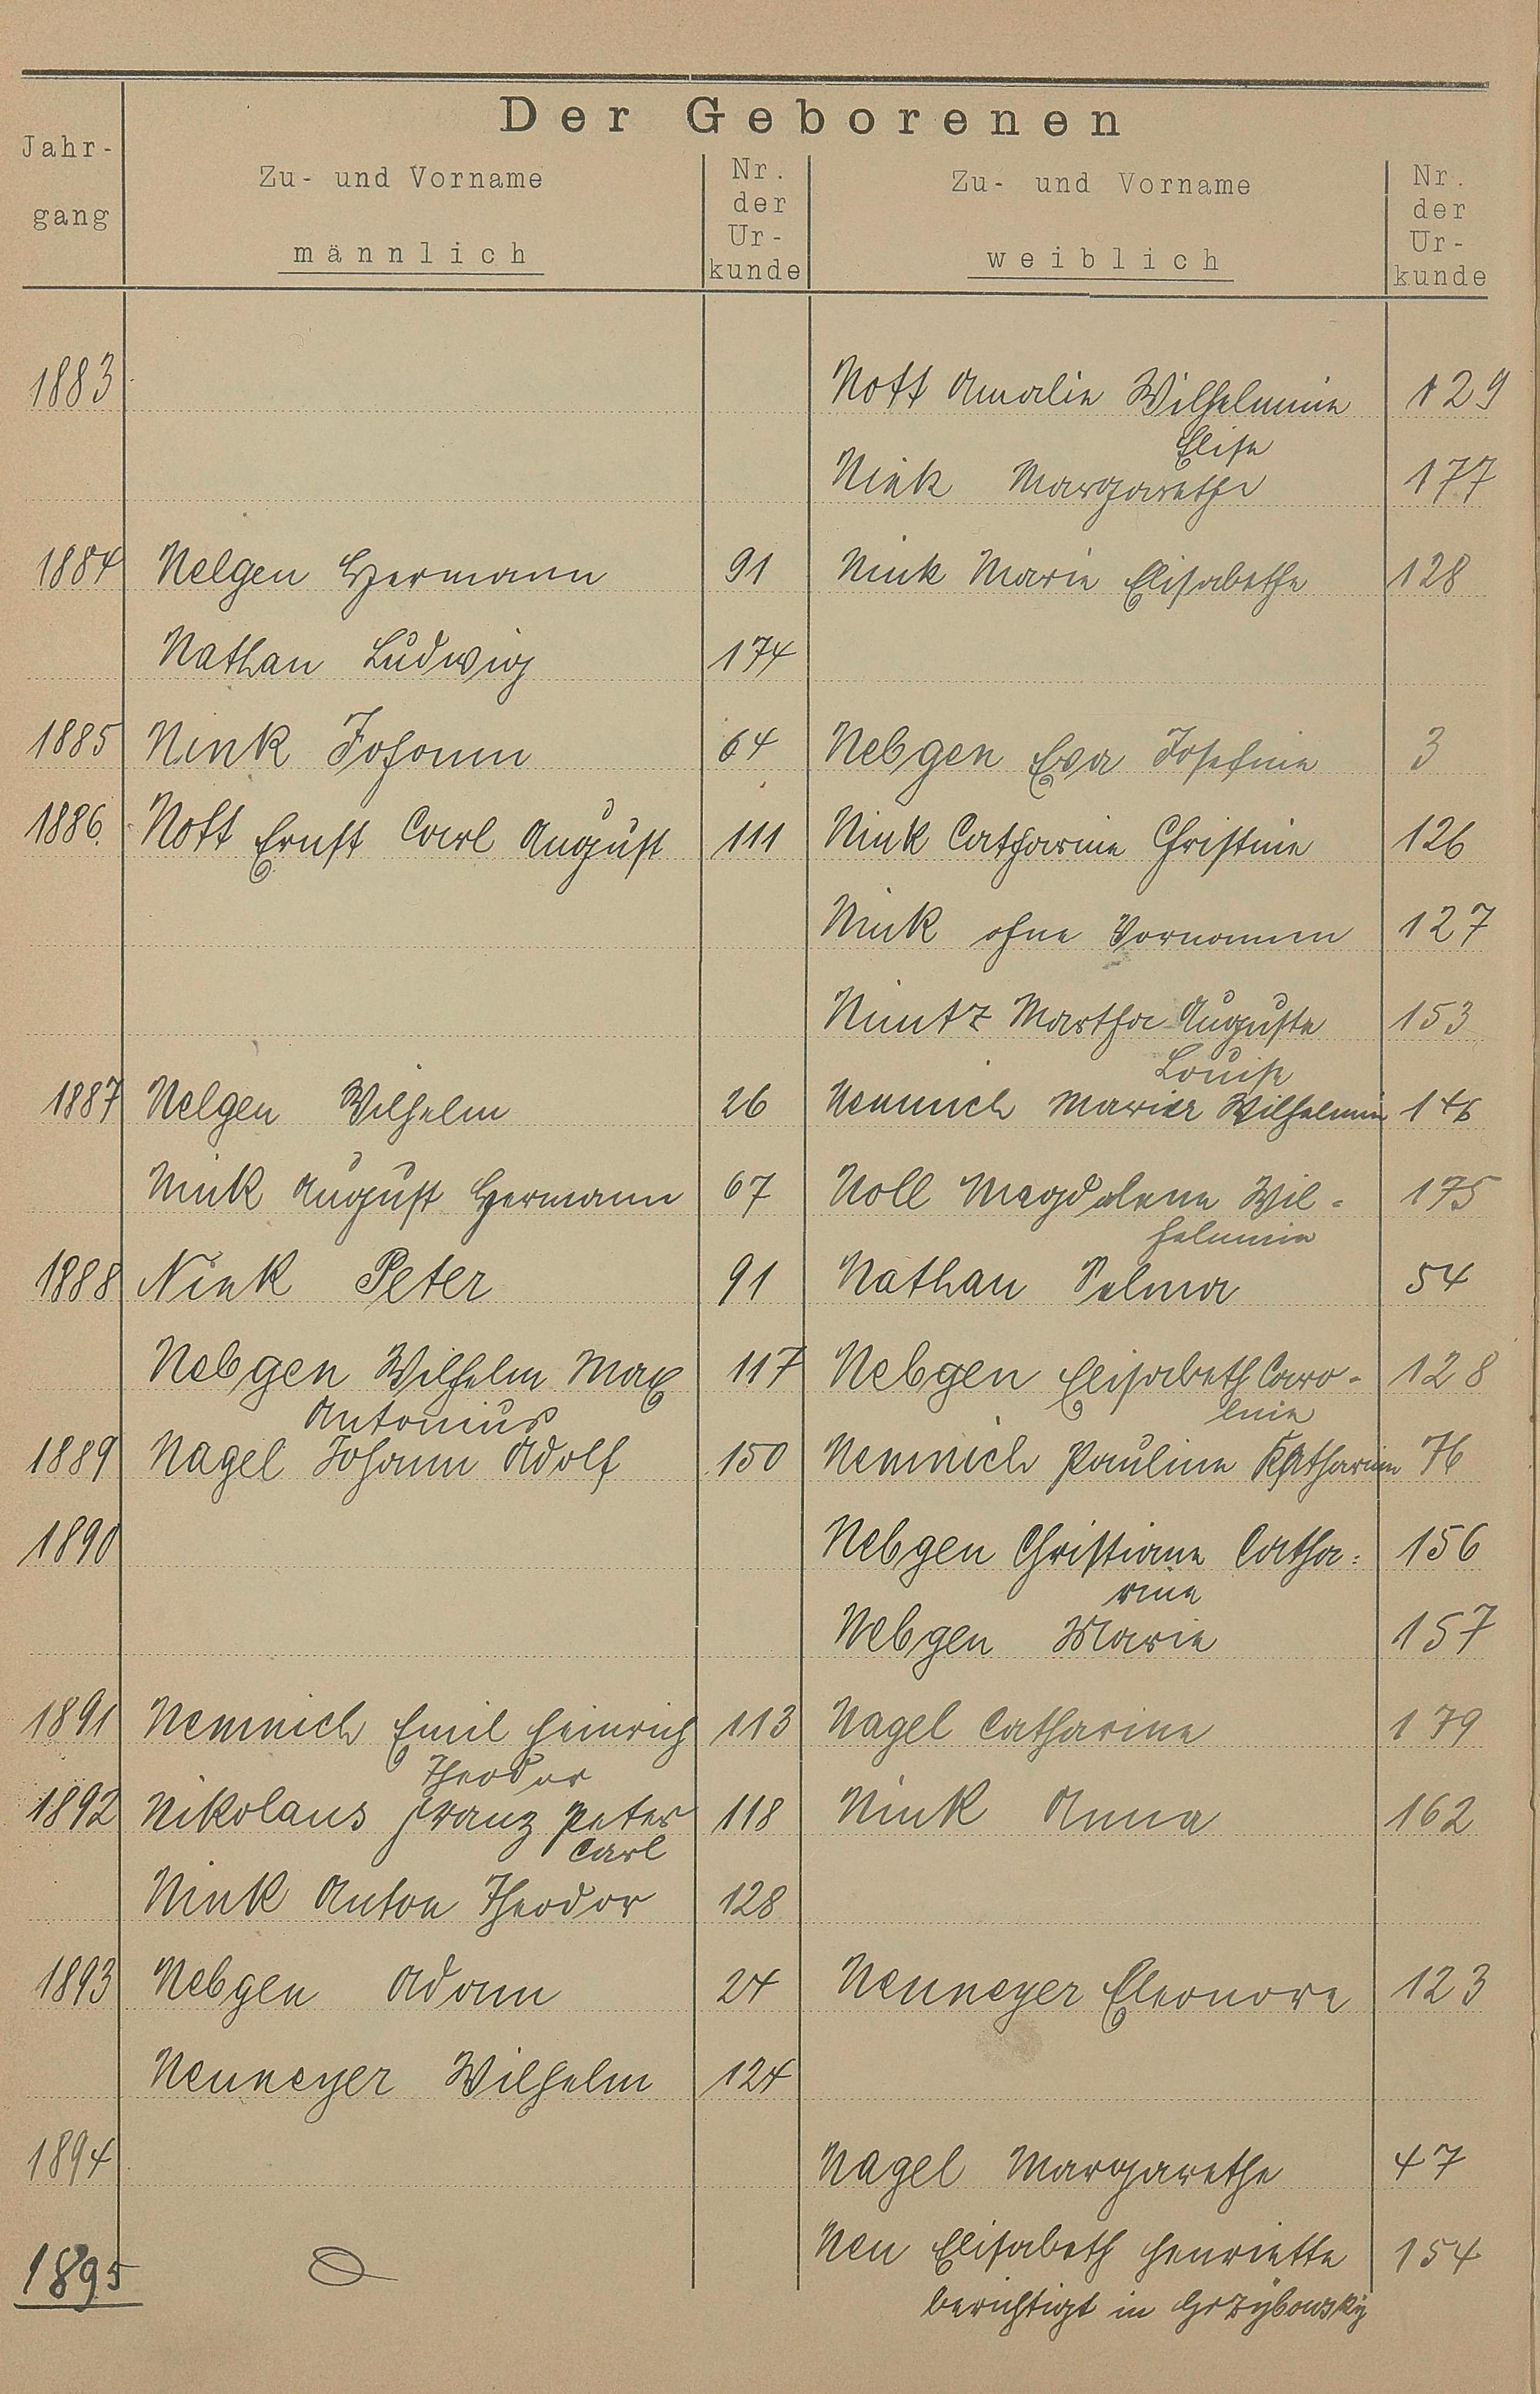 Der Geborenen
Jahr-
gang
Zu- und Vorname
männlich
Nr.
der
Ur-
kunde
Zu- und Vorname
weiblich
Nr.
der
Ur-
kunde
1883 Nott Amalie Wilhelmine 129
Elise
Nink Margarethe 177
1884 Nelgen Hermann 91 Nink Marie Elisabethe 128
Nathan Ludwig 174
1885 Nink Johann 64 Nebgen Eva Josefine 3
1886. Nott Ernst Carl August 111 Nink Catharine Christine 126
Nink ohne Vornamen 127
Nimtz Martha Auguste 153
Louise
1887 Nelgen Wilhelm 26 Nemnich Marie Wilhelmine 146
Nink August Hermann 67 Noll Magdalena Wil- 175
helmine
1888 Nink Peter 91 Nathan Selma 54
Nebgen Wilhelm Max 117 Nebgen Elisabeth Caro- 128
Antonius line
1889 Nagel Johann Adolf 150 Nemnich Pauline Katharine 76
1890 Nebgen Christiane Catha- 156
rine
Nebgen Marie 157
1891 Nemnich Emil Heinrich 113 Nagel Catharine 179
Theodor
1892 Nikolaus Franz Peter 118 Nink Anna 162
Carl
Nink Anton Theodor 128
1893 Nebgen Adam 24 Neumeyer Eleonore 123
Neumeyer Wilhelm 124
1894 Nagel Margarethe 47
Neu Elisabeth Henriette 154
1895
berichtigt in Grzybowsky